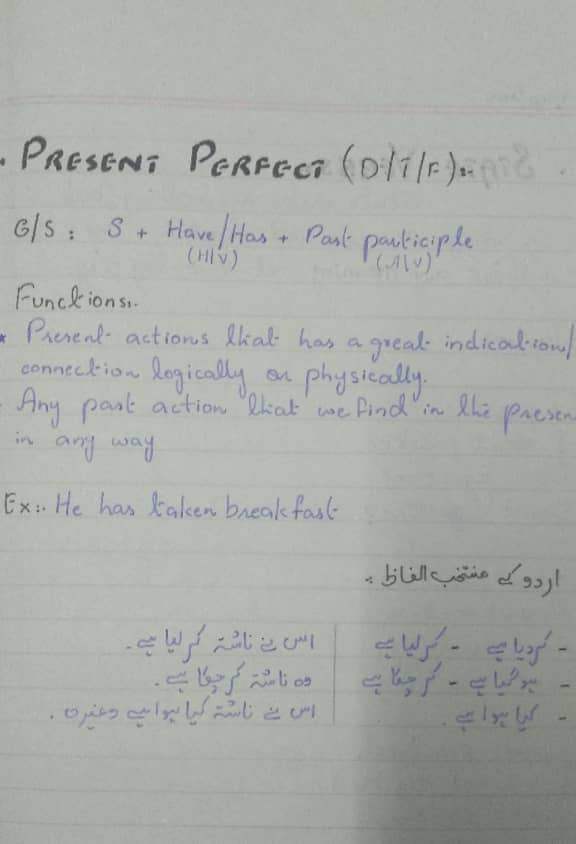 . PRESENT PERFECT (D/T/F):-
G/S : S + Have/Has + Past participle
(H|V) (M|V)
Functions:.
* Present actions that has a great indication/
connection logically or physically.
Any past action that we find in the presen
in any way
Ex:. He has taken breakfast
اردو کے منتخب الفاظ :.
- کردیا ہے - کر لیا ہے | اس نے ناشتہ کر لیا ہے۔
- ہو گیا ہے - کر چکا ہے | وہ ناشتہ کر چکا ہے۔
- کیا ہوا ہے۔ | اس نے ناشتہ کیا ہوا ہے وغیرہ۔